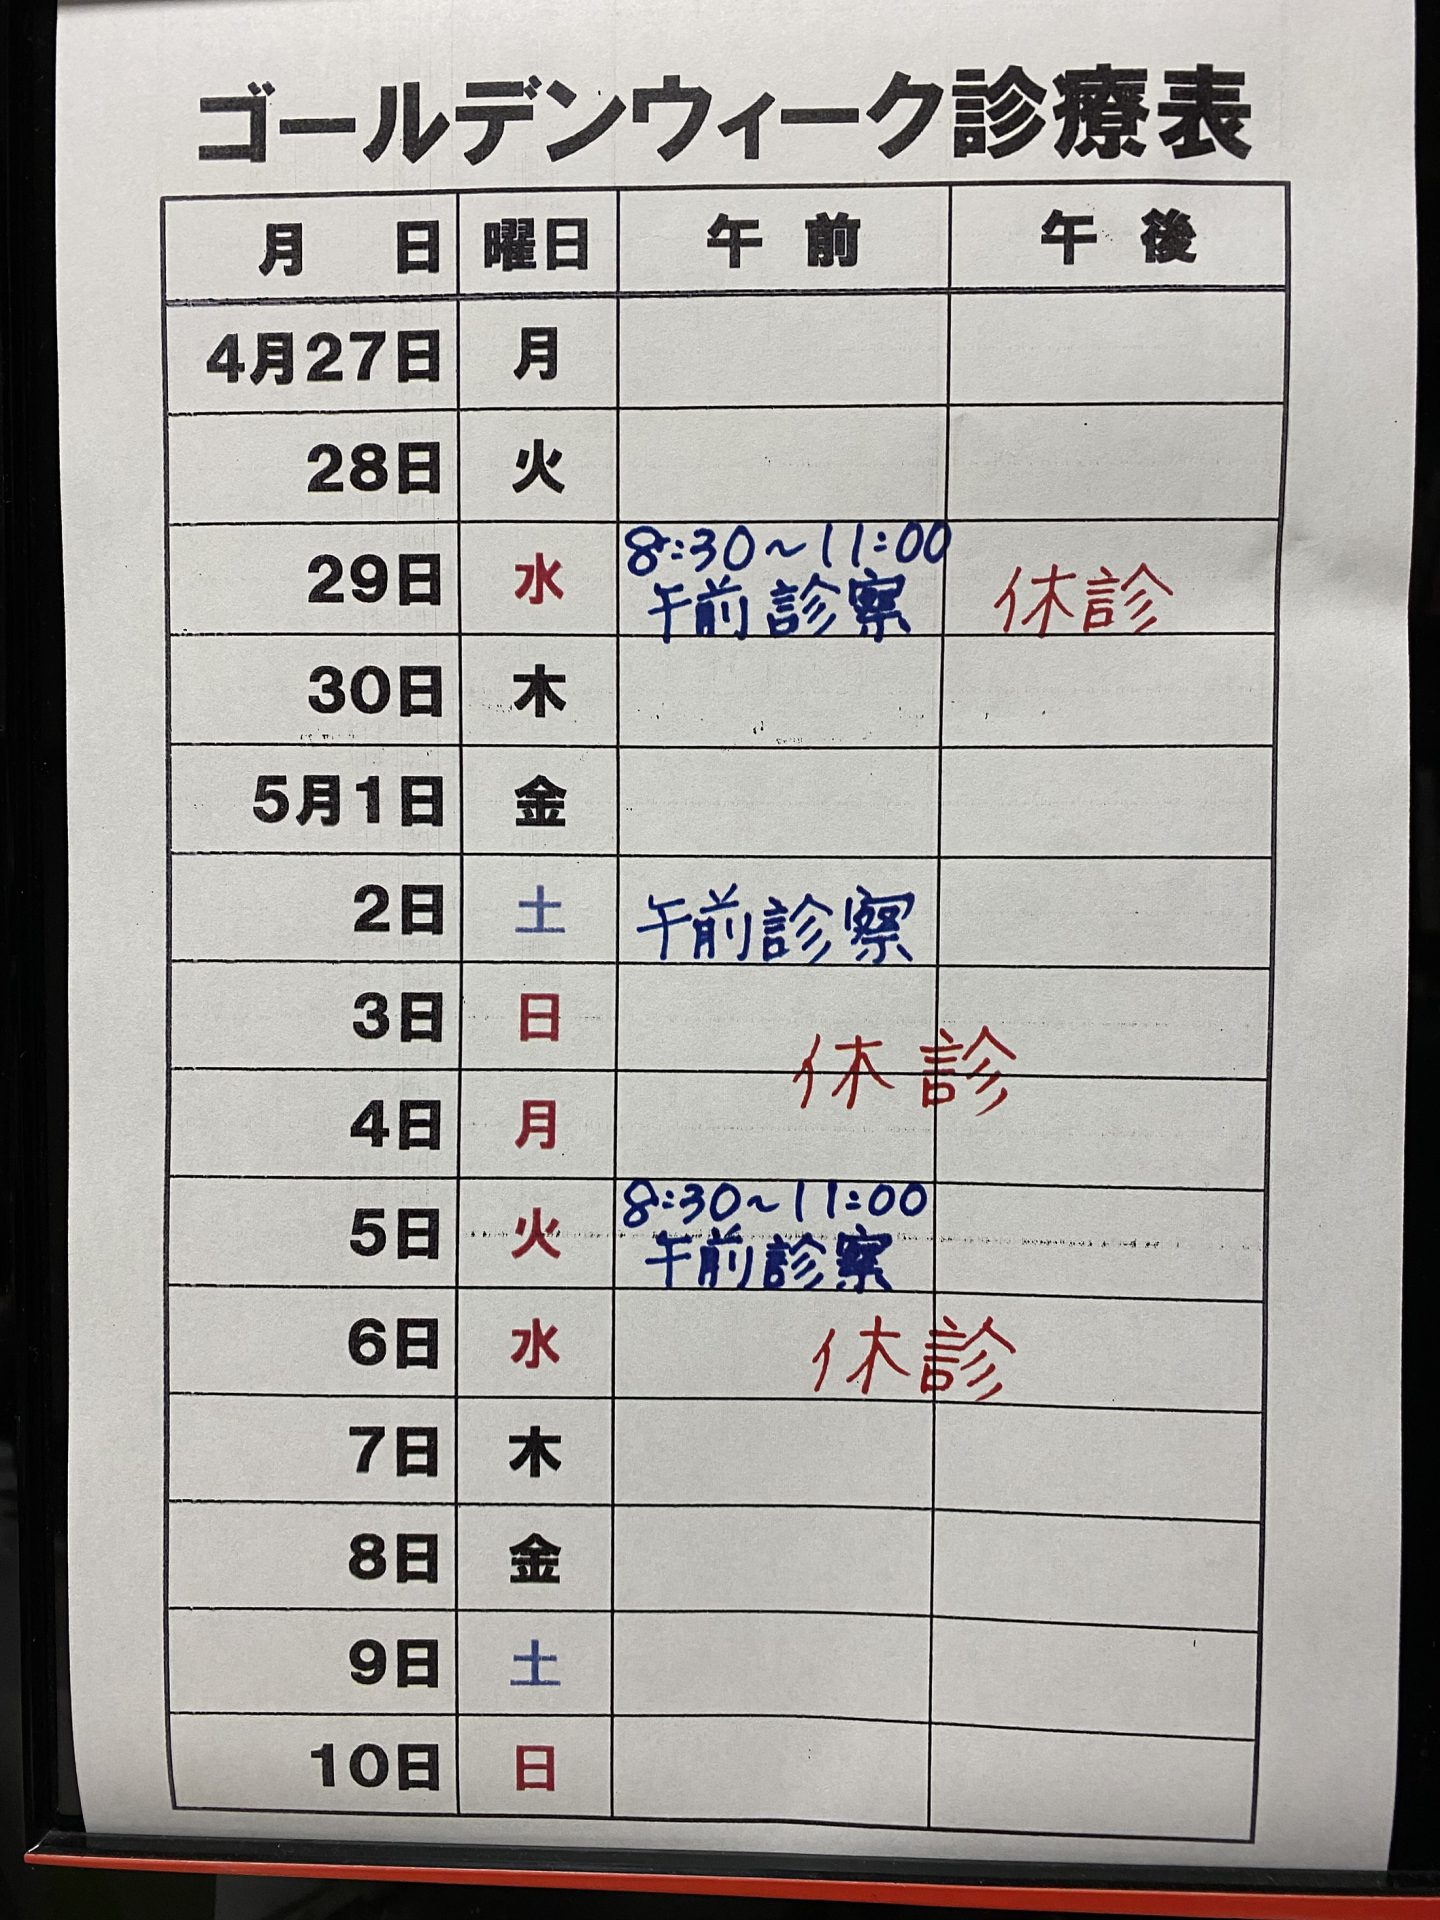 ゴールデンウィーク診療表
月 日 曜日 午前 午後
4月27日 月
28日 火
29日 水 8:30～11:00 午前診察 休診
30日 木
5月1日 金
2日 土 午前診察
3日 日
休診
4日 月
5日 火 8:30～11:00 午前診察
6日 水 休診
7日 木
8日 金
9日 土
10日 日